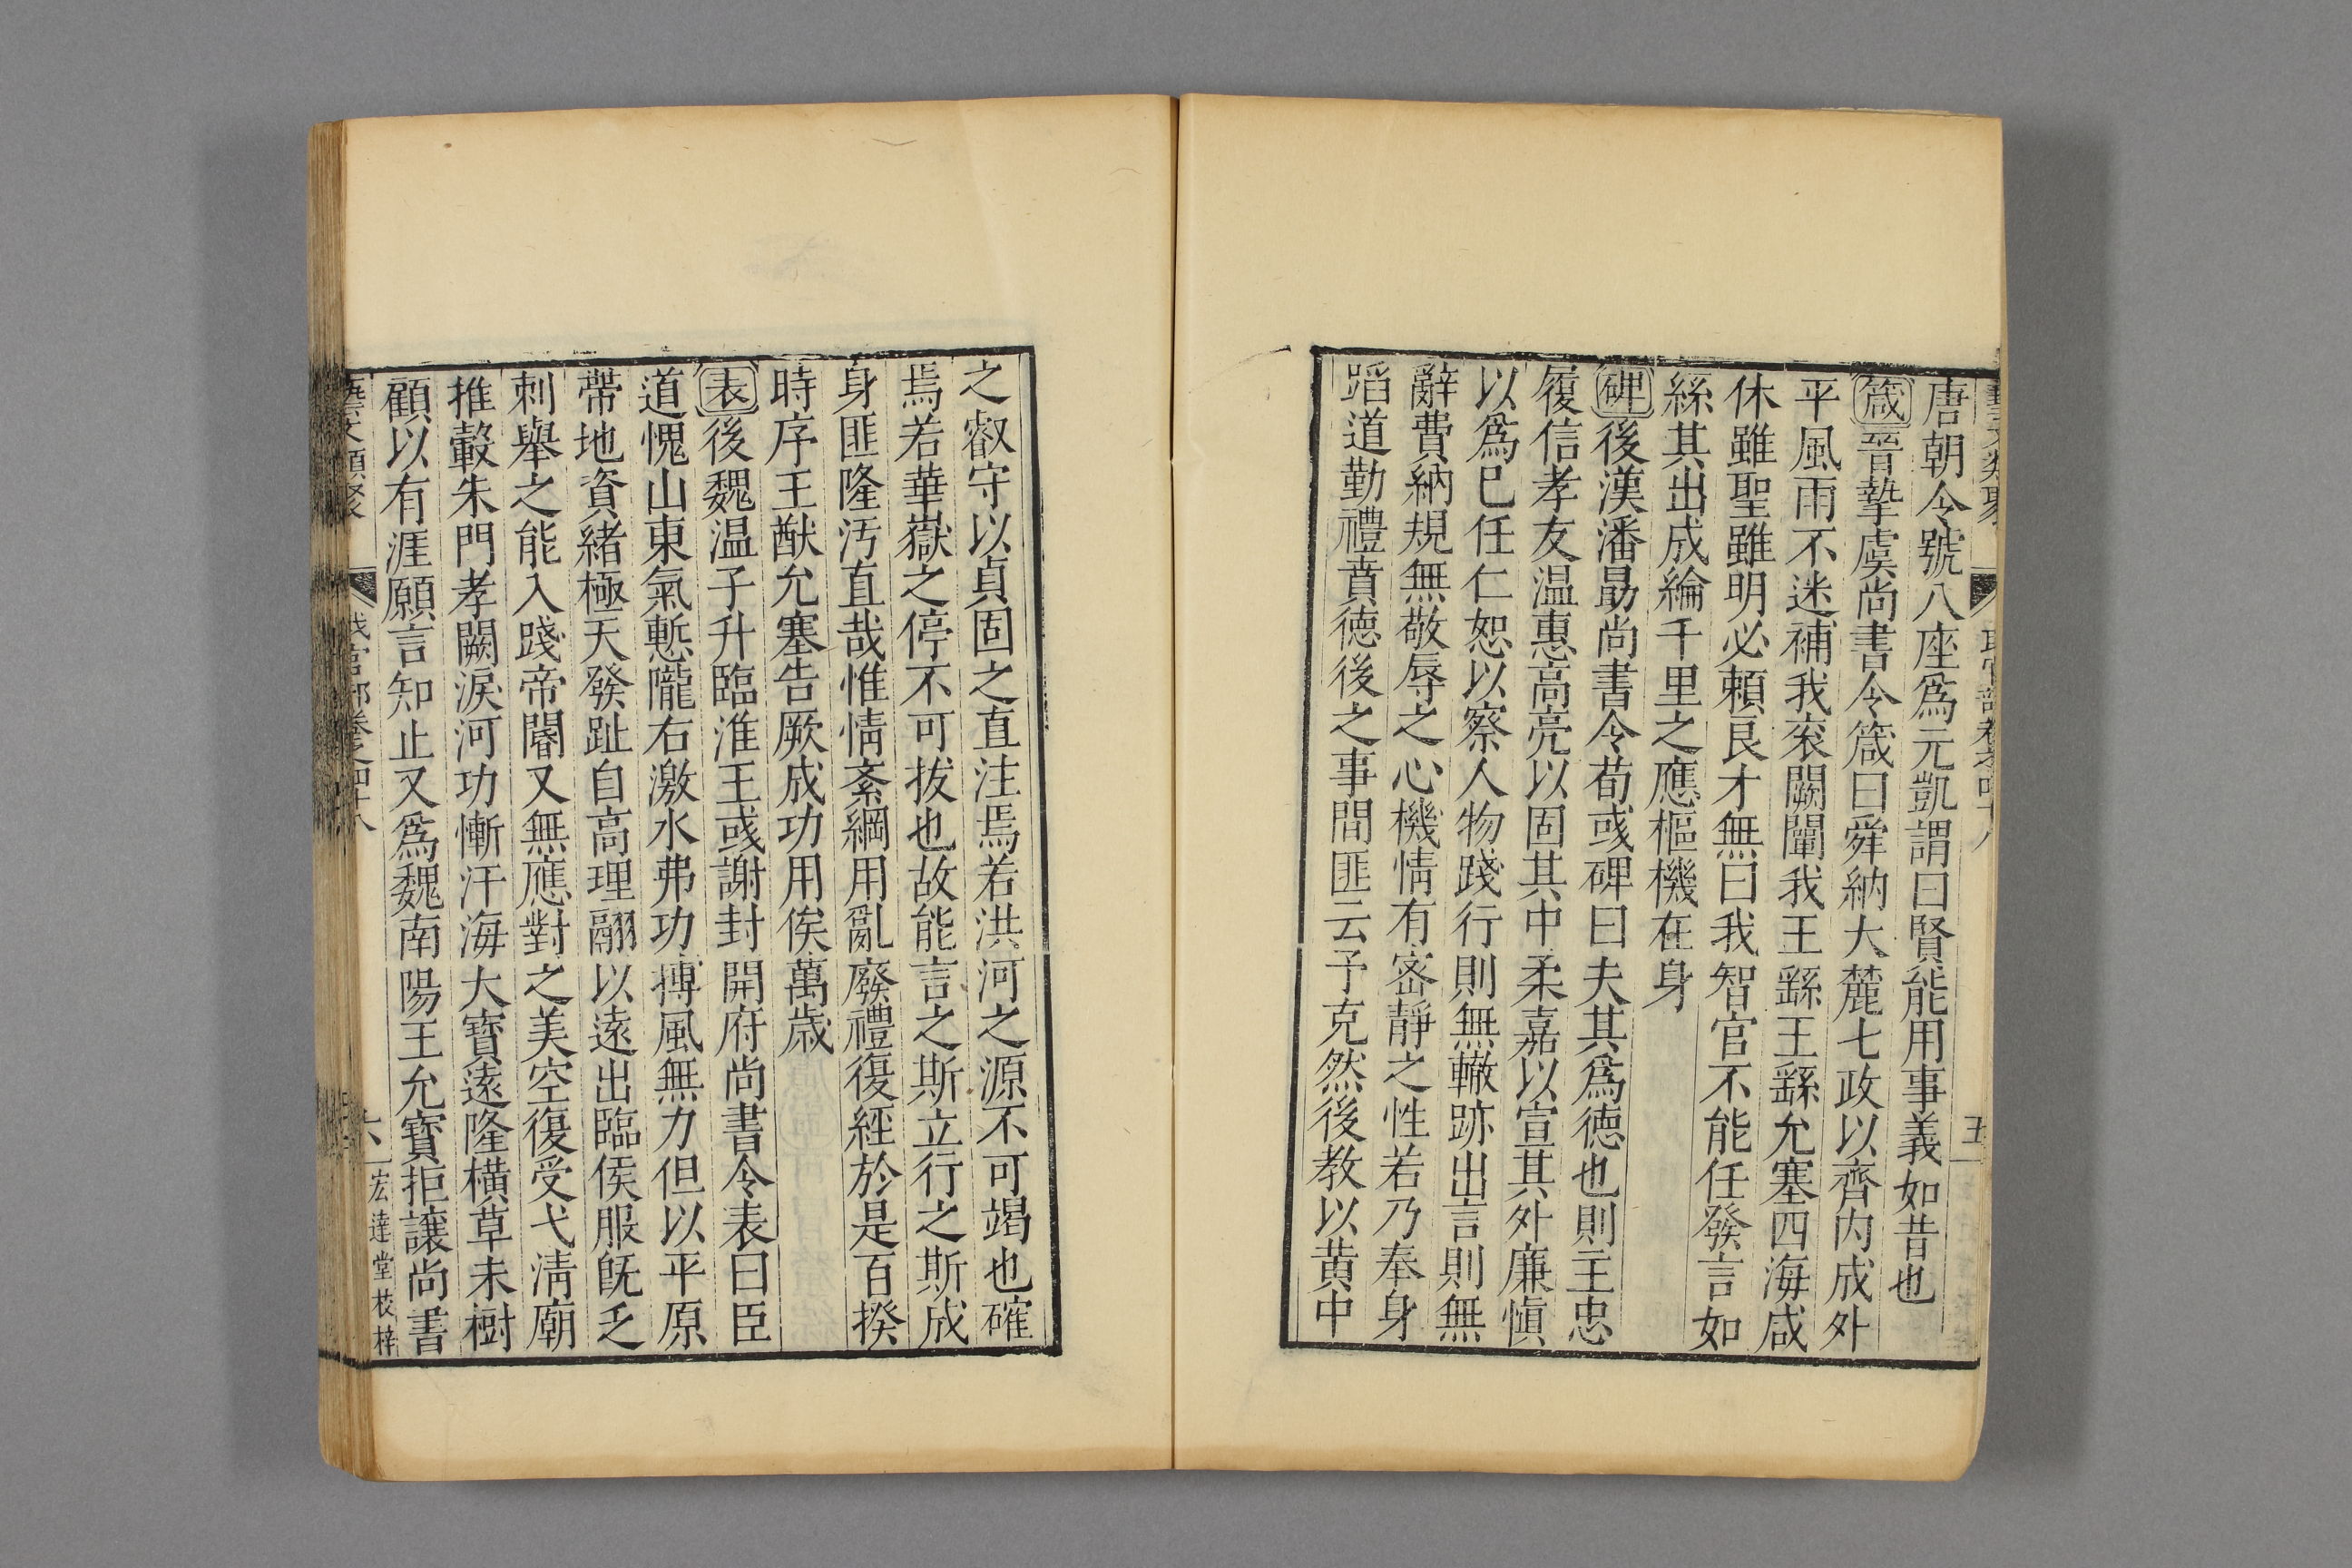 唐朝令號八座爲元凱謂曰賢能用事義如昔也
箴晉摯虞尚書令箴曰舜納大麓七政以齊内成外
平風雨不迷補我衮闕闡我王繇王繇允塞四海咸
休雖聖雖明必賴良才無曰我智官不能任發言如
絲其出成綸千里之應樞機在身
碑後漢潘勗尚書令荀彧碑曰夫其爲德也則主忠
履信孝友温惠高亮以固其中柔嘉以宣其外廉愼
以爲巳任仁恕以察人物踐行則無轍跡出言則無
辭費納規無敬辱之心機情有密靜之性若乃奉身
蹈道勤禮賁德後之事間匪云予克然後教以黄中
之叡守以貞固之直注焉若洪河之源不可竭也確
焉若華嶽之停不可拔也故能言之斯立行之斯成
身匪隆汚直哉惟情紊綱用亂廢禮復經於是百揆
時序王猷允塞告厥成功用俟萬歲
表後魏温子升臨淮王彧謝封開府尚書令表曰臣
道愧山東氣慙隴右激水弗功摶風無力但以平原
帶地資緒極天發趾自高理翮以遠出臨侯服旣乏
刺舉之能入踐帝閽又無應對之美空復受弋淸廟
推轂朱門孝闕淚河功慚汗海大寶遠隆橫草未樹
顧以有涯願言知止又爲魏南陽王允寶拒讓尚書
藝文類聚
職官部卷之四十八
六
宏達堂校梓